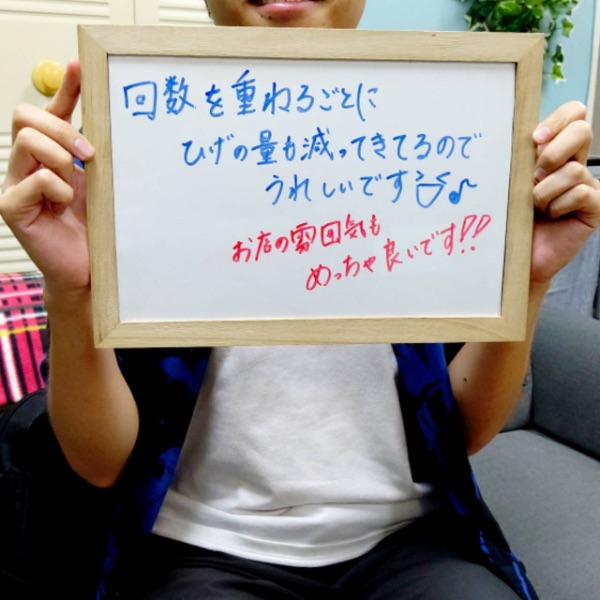 回数を重ねるごとに
ひげの量も減ってきてるので
うれしいです♪
お店の雰囲気も
めっちゃ良いです!!